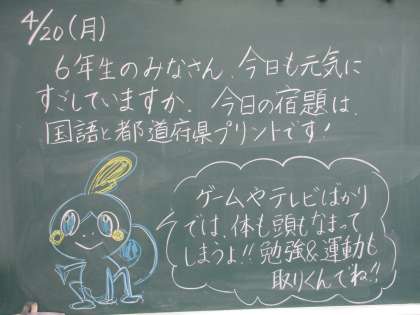 4/20(月)
6年生のみなさん、今日も元気に
すごしていますか。今日の宿題は、
国語と都道府県プリントです!
ゲームやテレビばかり
では、体も頭もなまって
しまうよ!!勉強&運動も
取りくんでね!!